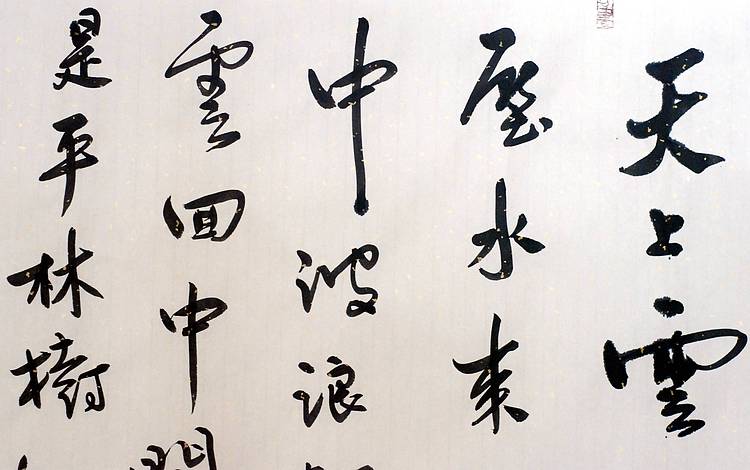 天上雲
壓水來
中波浪
雲回中
是平林樹